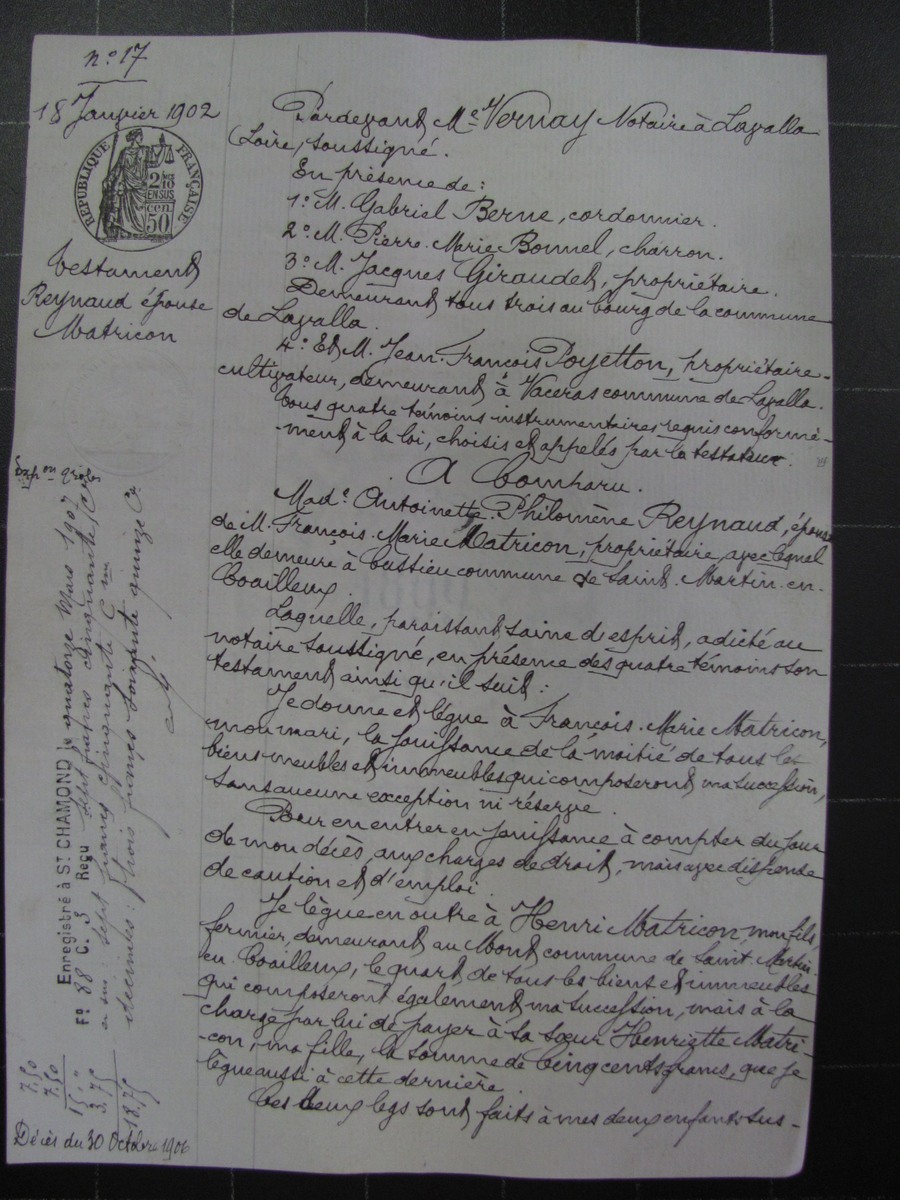 n° 17
18 Janvier 1902
RÉPUBLIQUE FRANÇAISE
2/10
EN SUS
cen
50
Testament
Reynaud épouse
Matricon
Pardevant Me Vernay Notaire à Lavalla
(Loire, soussigné.
En présence de :
1° M. Gabriel Berne, cordonnier.
2° M. Pierre-Marie Bonnel, charron.
3° M. Jacques Giraudet, propriétaire.
Demeurant tous trois au bourg de la commune
de Lavalla.
4° Et M. Jean-François Poyetton, propriétaire-
cultivateur, demeurant à Vaceras commune de Lavalla.
Tous quatre témoins instrumentaires requis conformé-
-ment à la loi, choisis et appelés par la testateur.
A Comparu.
Made Antoinette-Philomène Reynaud, épouse
de M. François-Marie Matricon, propriétaire, avec lequel
elle demeure à Custieu commune de Saint-Martin-en-
Coailleux.
Laquelle, paraissant saine d'esprit, a dicté au
notaire soussigné, en présence des quatre témoins son
testament ainsi qu'il suit :
Je donne et lègue à François-Marie Matricon,
mon mari, la jouissance de la moitié de tous les
biens meubles et immeubles qui composeront ma succession,
sans aucune exception ni réserve.
Pour en entrer en jouissance à compter du jour
de mon décès, aux charges de droit, mais avec dispense
de caution et d'emploi.
Je lègue en outre à Henri Matricon, mon fils,
fermier, demeurant au Mont commune de Saint-Martin-
en-Coailleux, le quart de tous les biens et immeubles
qui composeront également ma succession, mais à la
charge par lui de payer à sa sœur Henriette Matri-
-con, ma fille, la somme de Cinq cents francs, que je
lègue aussi à cette dernière.
Ces deux legs sont faits à mes deux enfants sus-
Enregistré à St CHAMOND le quatorze Mars 1907
F° 88 C. 3 Reçu sept francs cinquante C
en sus : sept francs cinquante C
décimes : trois francs soixante quinze C.
7.50
7.50
15 "
3.75
18.75
Décès du 30 Octobre 1906